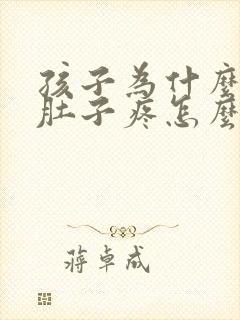 孩子為什麼
肚子疼怎麼
蔣卓成